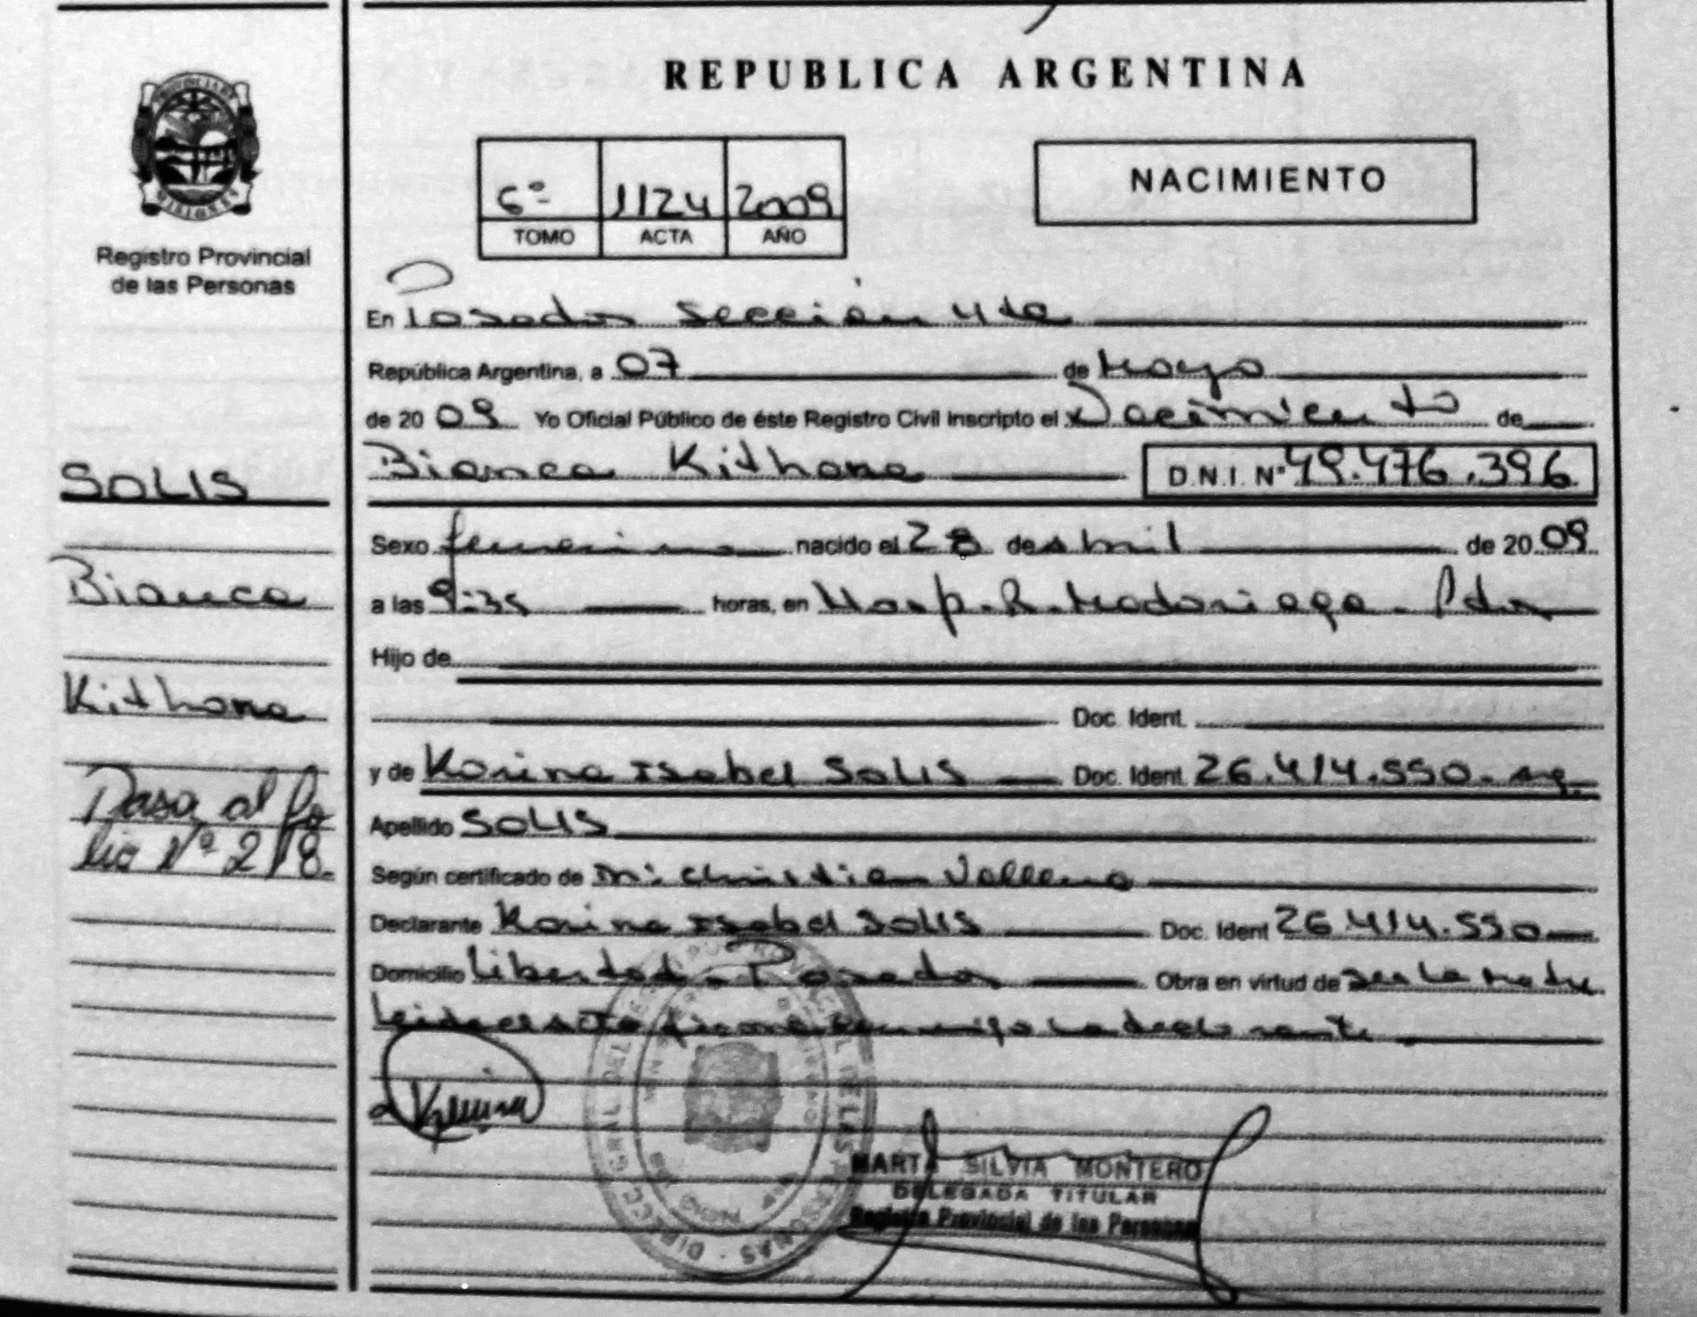 REPUBLICA ARGENTINA
NACIMIENTO
6º 1124 2009
TOMO ACTA AÑO
PROVINCIA DE MISIONES
Registro Provincial
de las Personas
En Posadas Sección 4ta
República Argentina, a 07 de Mayo
de 2009 Yo Oficial Público de éste Registro Civil Inscripto el Nacimiento de
Bianca Kithana D.N.I. Nº 49.476.396
Sexo femenino nacido el 28 de abril de 2009
a las 9:35 horas, en Hosp. R. Madariaga - Pdas
Hijo de
Doc. Ident.
y de Korina Isabel Solis Doc. Ident. 26.414.550 - arg.
Apellido SOLIS
Según certificado de Dr: Christian
Declarante Korina Isabel Solis Doc. Ident 26.414.550
Domicilio Libertad - Posadas Obra en virtud de ser la madre
Leída el acta firma conmigo la declarante
Korina
MARTA SILVIA MONTERO
DELEGADA TITULAR
Registro Provincial de las Personas
SOLIS
Bianca
Kithana
Pasa al fo
lio Nº 218.